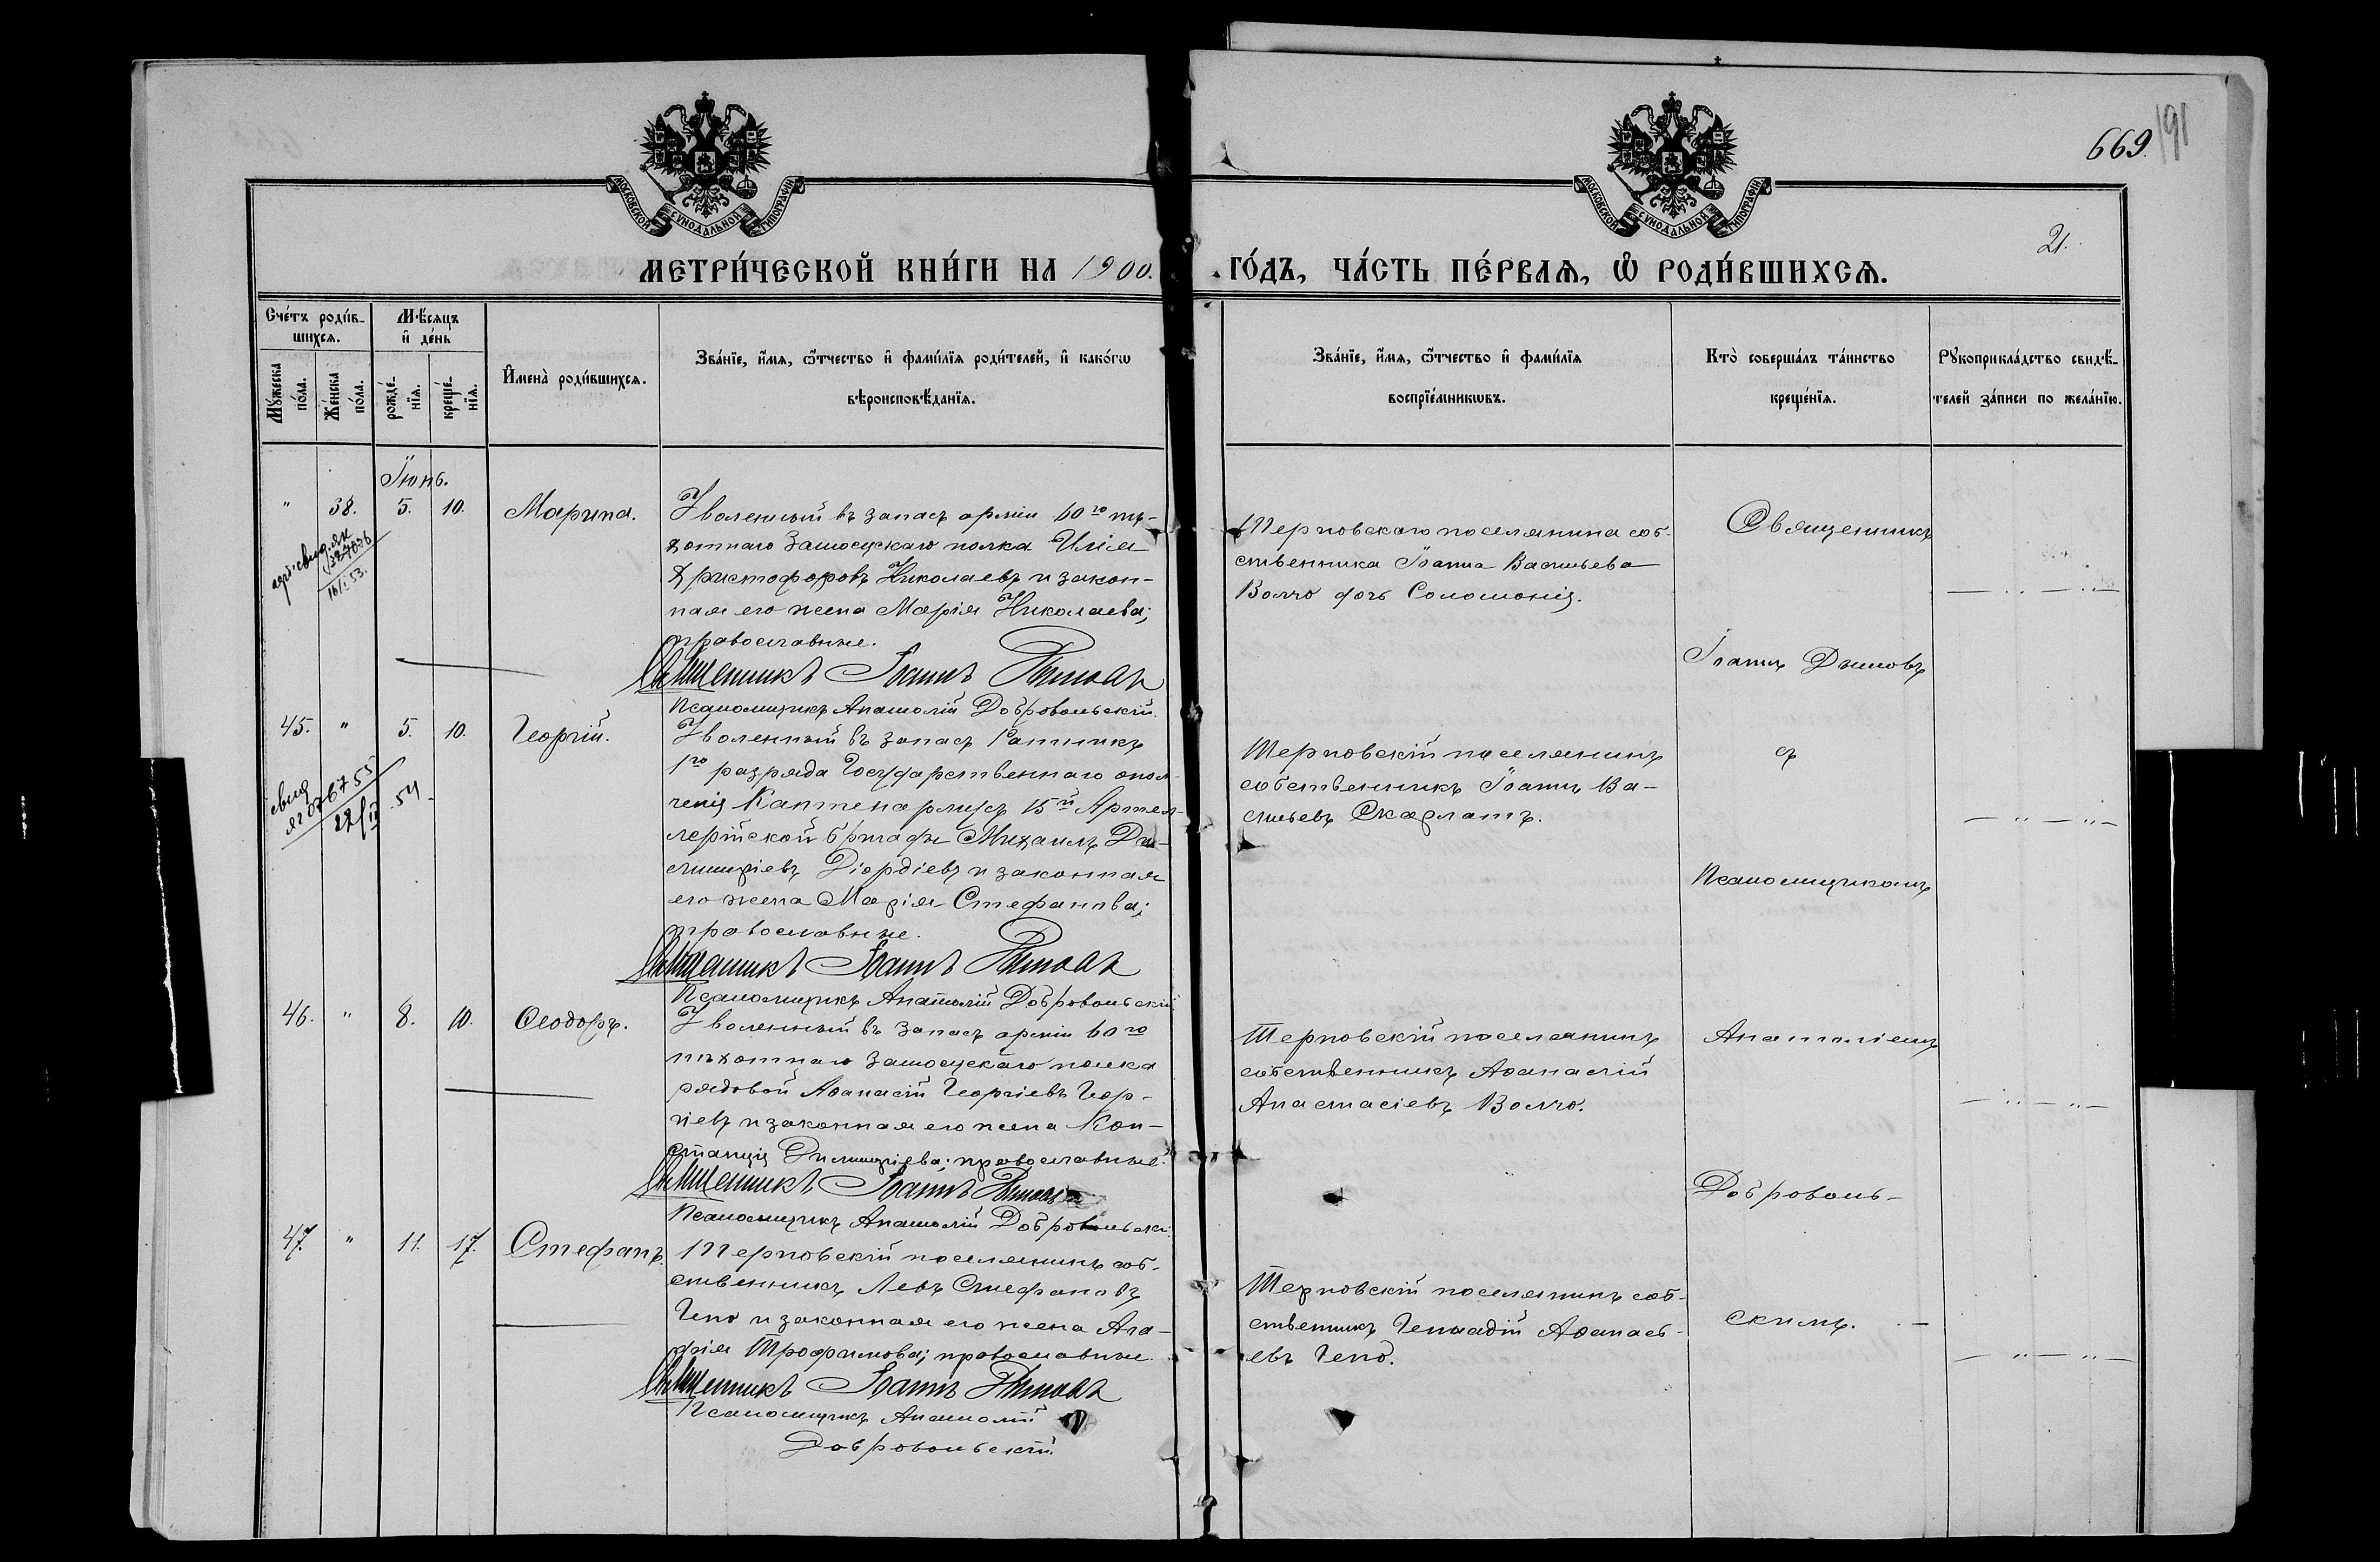 669.
191
21.
МОСКОВСКОЙ СѴНОДАЛЬНОЙ ТИПОГРАФІИ
МОСКОВСКОЙ СѴНОДАЛЬНОЙ ТИПОГРАФІИ
МЕТРИ́ЧЕСКОЙ КНИ́ГИ НА 1900. ГО́ДЪ, ЧА́СТЬ ПЕ́РВАѦ, Ѽ РОДИ́ВШИХСѦ.
Сче́тъ роди́в-
шихсѧ.
Мѣ́сѧцъ
и҆ де́нь
Мꙋ́жеска по́ла.
Же́нска по́ла.
рожде́-
нїѧ.
креще́-
нїѧ.
И҆мена̀ роди́вшихсѧ.
Зва́нїе, и҆́мѧ, ѻ҆́тчество и҆ фами́лїѧ роди́телей, и҆ како́гѡ
вѣроисповѣ́данїѧ.
Зва́нїе, и҆́мѧ, ѻ҆́тчество и҆ фами́лїѧ
воспрїе́мникѡвъ.
Кто̀ соверша́лъ та́инство
креще́нїѧ.
Рꙋкоприкла́дство свидѣ́-
телей за́писи по жела́нїю.
Іюнь.
" 38. 5. 10. Марина.
Уволенный въ запасъ арміи 60го пѣ-
хотнаго Замосцскаго полка Илія
Христофоровъ Николаевъ и закон-
ная его жена Марія Николаева;
православные.
Священникъ Іоаннъ Дымовъ
Псаломщикъ Анатолій Добровольскій.
Терновскаго поселянина соб-
ственника Іоанна Васильева
Волчо дочь Соломонія.
Священникъ
Іоаннъ Дымовъ
16/ 53.
45. " 5. 10. Георгій.
Уволенный въ запасъ Ратникъ
1го разряда Государственнаго опол-
ченія Каптенармусъ 15й Артил-
лерійской бригады Михаилъ Ди-
митріевъ Діордіевъ и законная
его жена Марія Стефанова;
православные.
Священникъ Іоаннъ Дымовъ
Псаломщикъ Анатолій Добровольскій
Терновскій поселянинъ
собственникъ Іоаннъ Ва-
сильевъ Скарлатъ.
съ
Псаломщикомъ
46. " 8. 10. Ѳеодоръ.
Уволенный въ запасъ арміи 60го
пѣхотнаго Замосцскаго полка
рядовой Аѳанасій Георгіевъ Геор-
гіевъ и законная его жена Кон-
станція Димитріева; православные.
Священникъ Іоаннъ Дымовъ
Псаломщикъ Анатолій Добровольскі
Терновскій поселянинъ
собственникъ Аѳанасій
Анастасіевъ Волчо.
Анатоліемъ
Доброволь-
47. " 11. 17. Стефанъ.
Терновскій поселянинъ соб-
ственникъ Левъ Стефановъ
Чепо и законная его жена Ага-
фія Трофимова; православные.
Священникъ Іоаннъ Дымовъ
Псаломщикъ Анатолій
Добровольскій.
Терновскій поселянинъ соб-
ственникъ Геннадій Аѳанась-
евъ Чепо.
скимъ.